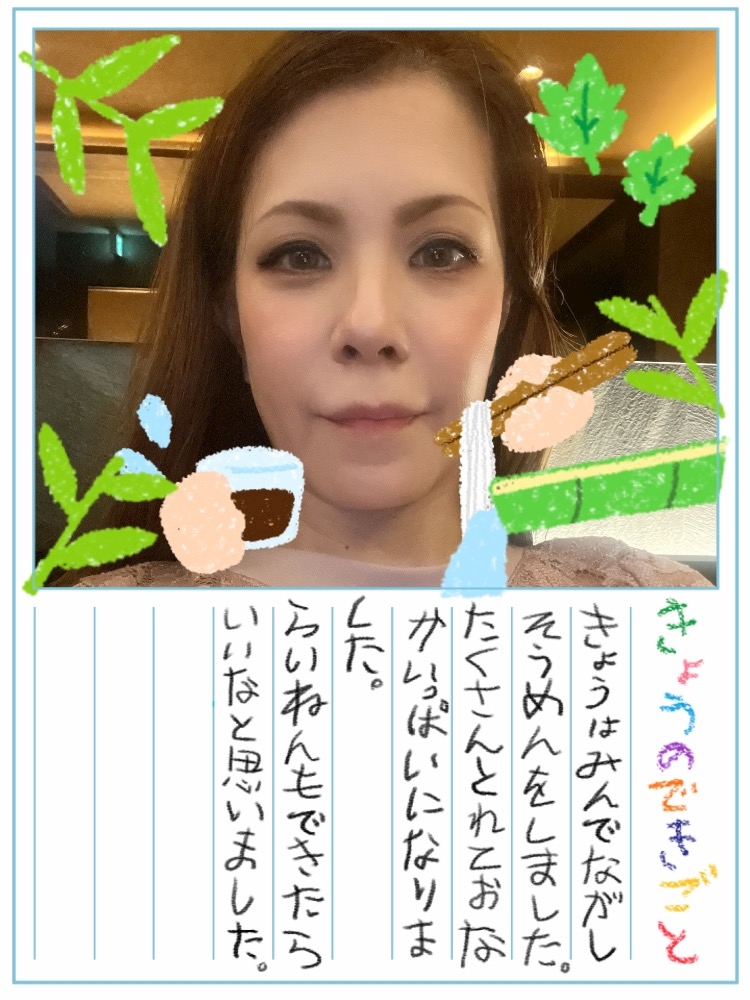 きょうのできごと
きょうはみんでながし
そうめんをしました。
たくさんとれておな
かいっぱいになりま
した。
らいねんもできたら
いいなと思いました。